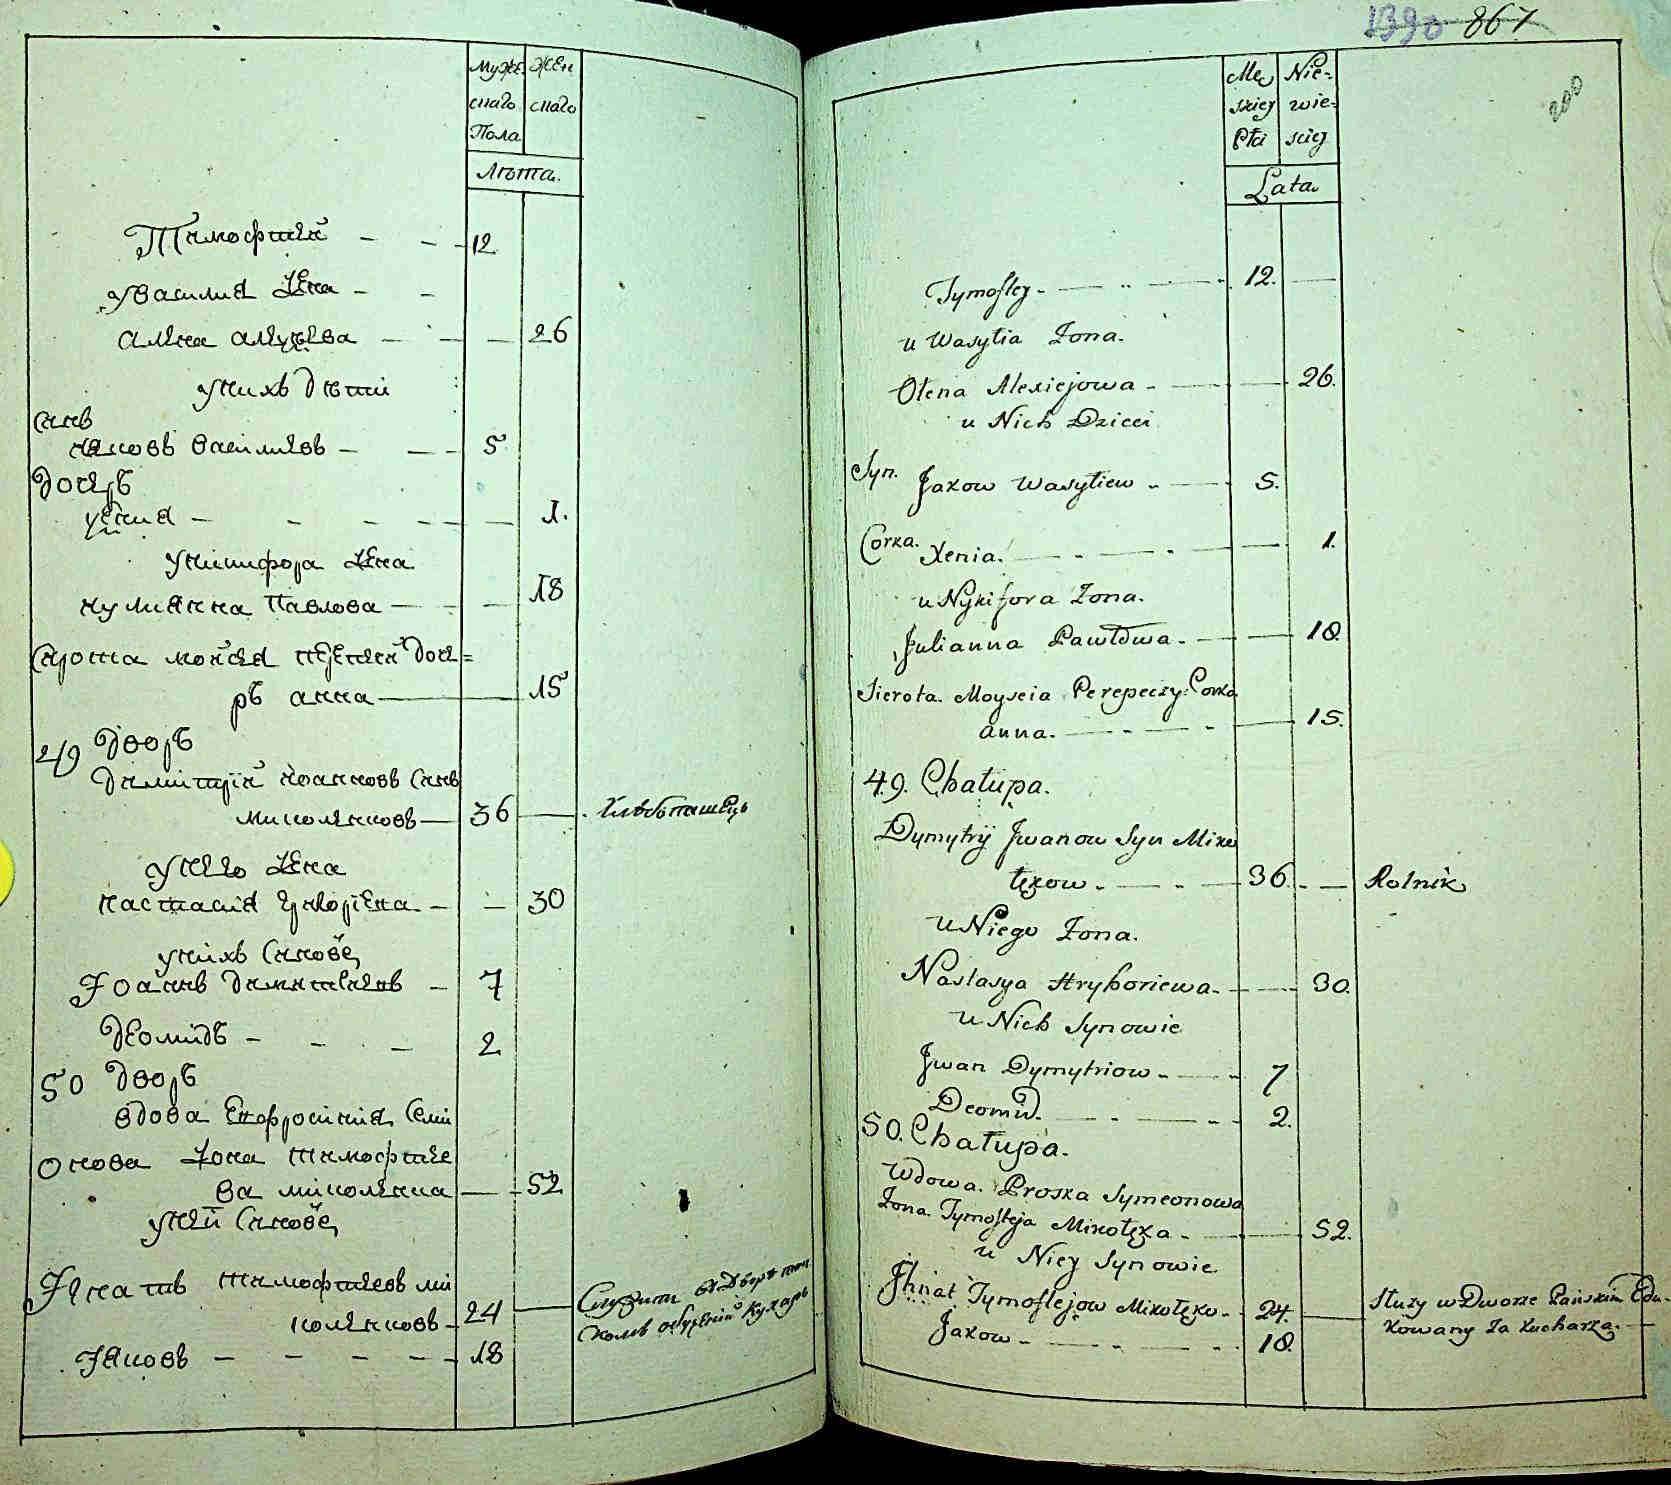 Муже
скаго
Пола
Жен
скаго
Лѣта.
Тимофтей - - - 12
у василия Жена - -
алена алеѯѣева - - - 26
у нихъ дѣти
Синъ
Яковъ василиевъ - - - 5
Дочеръ
Ѯения - - - - - 1.
у Никифора Жена
иулиянна Павлова - - - 18
Сирота мойсея перепечей дочѣ=
ръ анна - 15
49 Дворъ
Димитрїй Іоанновъ Синъ
миколенковъ - 36 - Хлѣбопашецъ
у него Жена
настасия григориева - - 30
у нихъ Синове
Іоаннъ димитриевъ - 7
Деомидъ - - - 2
50 Дворъ
вдова Ефросиния Сими
онова Жона тимофтие
ва миколенка - - 52
у ней Синове
Ігнатий тимофтиевъ ми
коленковъ - 24 - Служитъ въ Дворѣ пан
скомъ обученій кухаръ
Іяковъ - - - - - 18
1390 867
200
Męz
skiey
Płci
Nie=
wie=
sciey
Lata.
Tymoftey - - - 12.
u Wasyla Zona.
Olena Alexiejowa - - - 26.
u Nich Dzieci
Syn.
Jakow Wasyliew - - 5.
Corka. Xenia. - - - - 1.
u Nykifora Zona.
Julianna Pawlowa - - - 18.
Sierota. Moyseia Perepeczy Corka
Anna. - - - - 15.
49. Chałupa.
Dymytry Jwanow Syn Miko
łękow - - - 36. - - Rolnik
u Niego Zona.
Nastasya Hryhoriewa - - - 30.
u Nich Synowie
Jwan Dymytriow - - - 7
Deomid. - - - 2.
50. Chałupa.
Wdowa. Proska Symeonowa
Zona. Tymofteja Mikołęka - - 52.
u Niey Synowie
Jhnat Tymoftejow Mikołęko - 24. - Służy w Dworze Pańskim Edu-
kowany za Kucharza. -
Jakow - - - - 18.